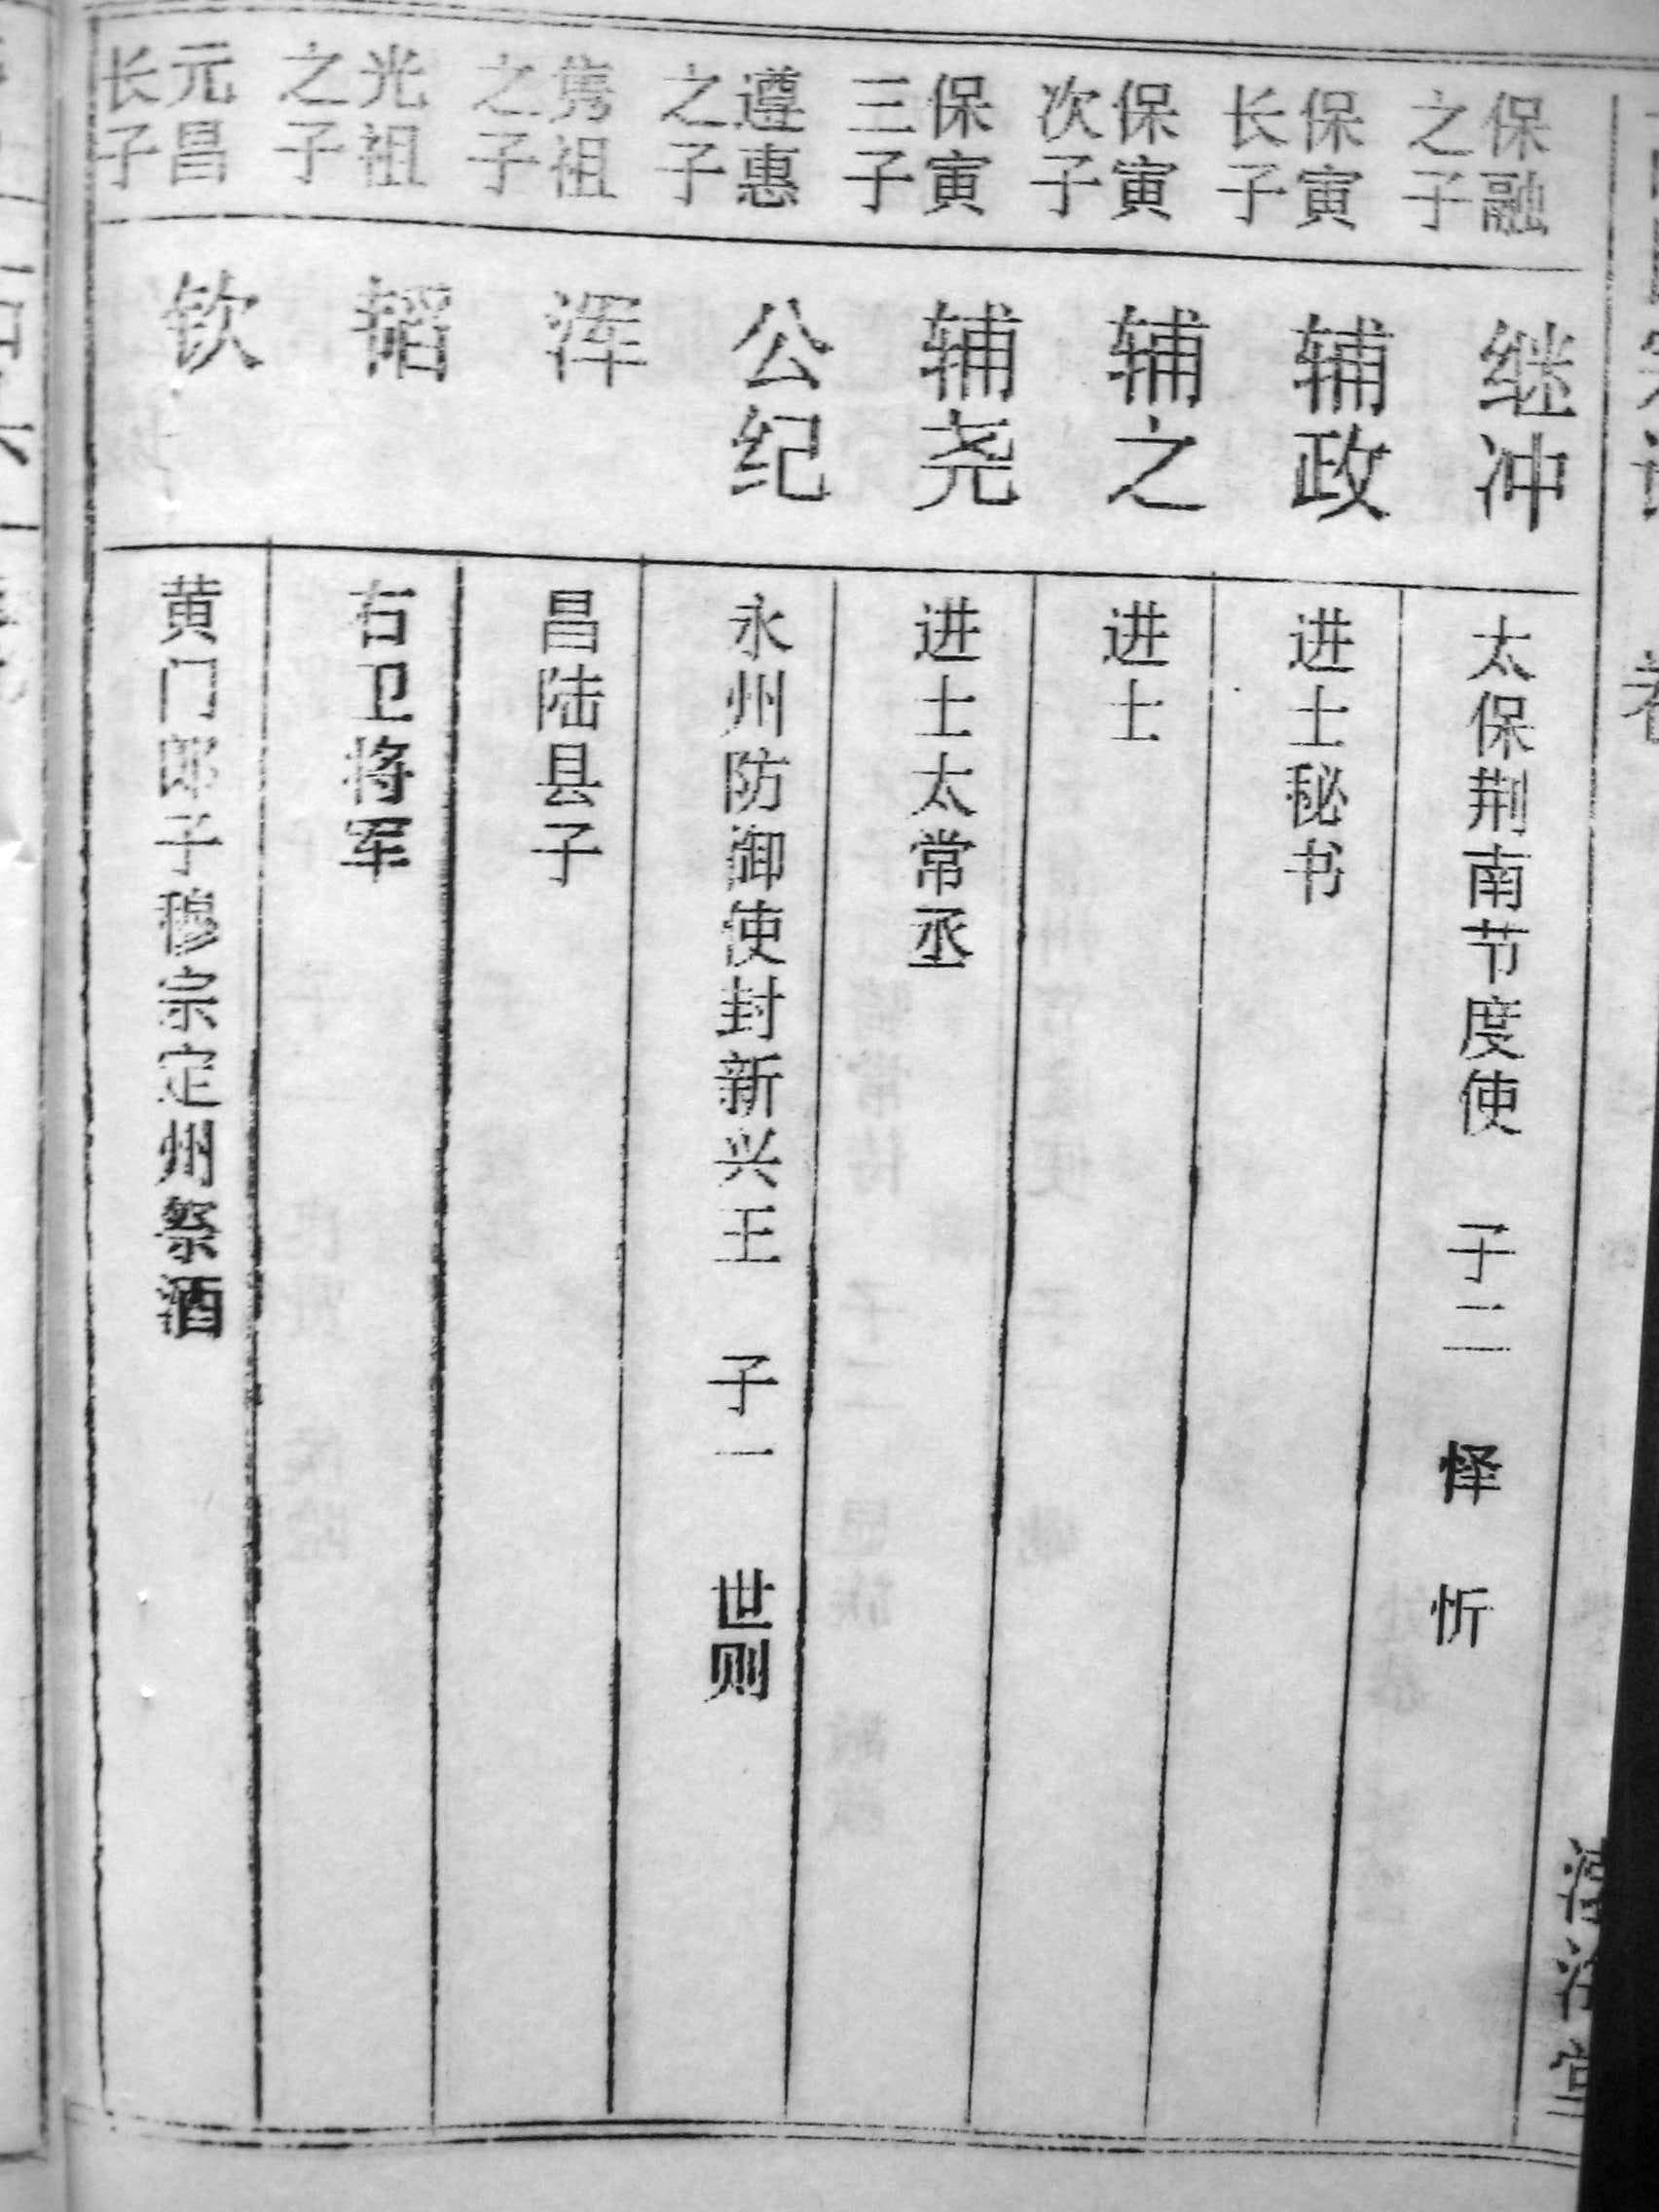 保融之子
继冲
太保荆南节度使 子二 怿 忻
保寅长子
辅政
进士秘书
保寅次子
辅之
进士
保寅三子
辅尧
进士太常丞
遵惠之子
公纪
永州防御使封新兴王 子一 世则
隽祖之子
浑
昌陆县子
光祖之子
韬
右卫将军
元昌长子
钦
黄门郎子穆宗定州祭酒